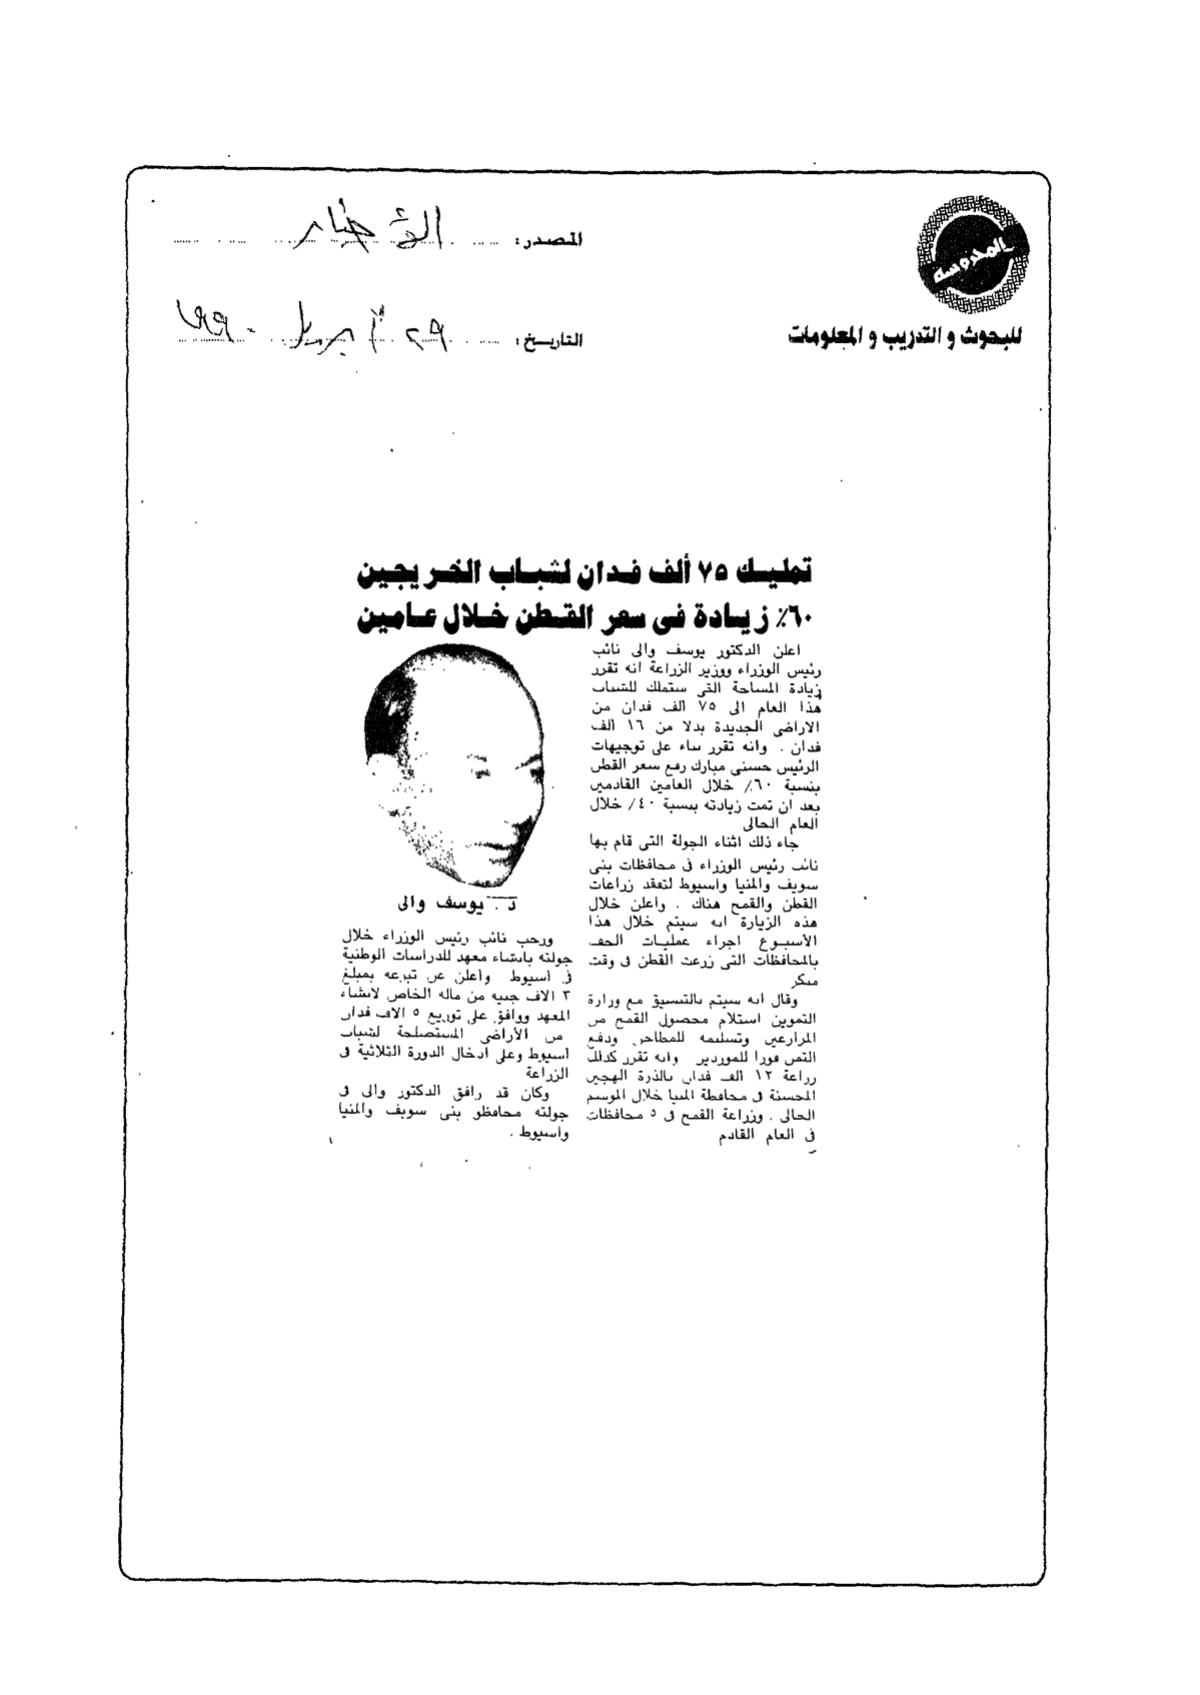 المحروسة
للبحوث و التدريب و المعلومات
المصدر: الأخبار
التاريخ: ٢٩ أبريل ١٩٩٠
تمليك ٧٥ ألف فدان لشباب الخريجين
٦٠٪ زيادة فى سعر القطن خلال عامين
اعلن الدكتور يوسف والى نائب
رئيس الوزراء ووزير الزراعة انه تقرر
زيادة المساحة التى ستملك للشباب
هذا العام الى ٧٥ الف فدان من
الاراضى الجديدة بدلا من ١٦ الف
فدان . وانه تقرر بناء على توجيهات
الرئيس حسنى مبارك رفع سعر القطن
بنسبة ٦٠٪ خلال العامين القادمين
بعد ان تمت زيادته بنسبة ٤٠٪ خلال
العام الحالى
جاء ذلك اثناء الجولة التى قام بها
نائب رئيس الوزراء فى محافظات بنى
سويف والمنيا واسيوط لتفقد زراعات
القطن والقمح هناك . واعلن خلال
هذه الزيارة انه سيتم خلال هذا
الأسبوع اجراء عمليات الخف
بالمحافظات التى زرعت القطن فى وقت
مبكر
وقال انه سيتم بالتنسيق مع وزارة
التموين استلام محصول القمح من
المزارعين وتسليمه للمطاحن ودفع
الثمن فورا للموردين وانه تقرر كذلك
زراعة ١٢ الف فدان بالذرة الهجين
المحسنة فى محافظة المنيا خلال الموسم
الحالى . وزراعة القمح فى ٥ محافظات
فى العام القادم
د . يوسف والى
ورحب نائب رئيس الوزراء خلال
جولته بانشاء معهد للدراسات الوطنية
فى اسيوط واعلن عن تبرعه بمبلغ
٣ الاف جنيه من ماله الخاص لانشاء
المعهد ووافق على توزيع ٥ الاف فدان
من الأراضى المستصلحة لشباب
اسيوط وعلى ادخال الدورة الثلاثية فى
الزراعة
وكان قد رافق الدكتور والى فى
جولته محافظو بنى سويف والمنيا
واسيوط .